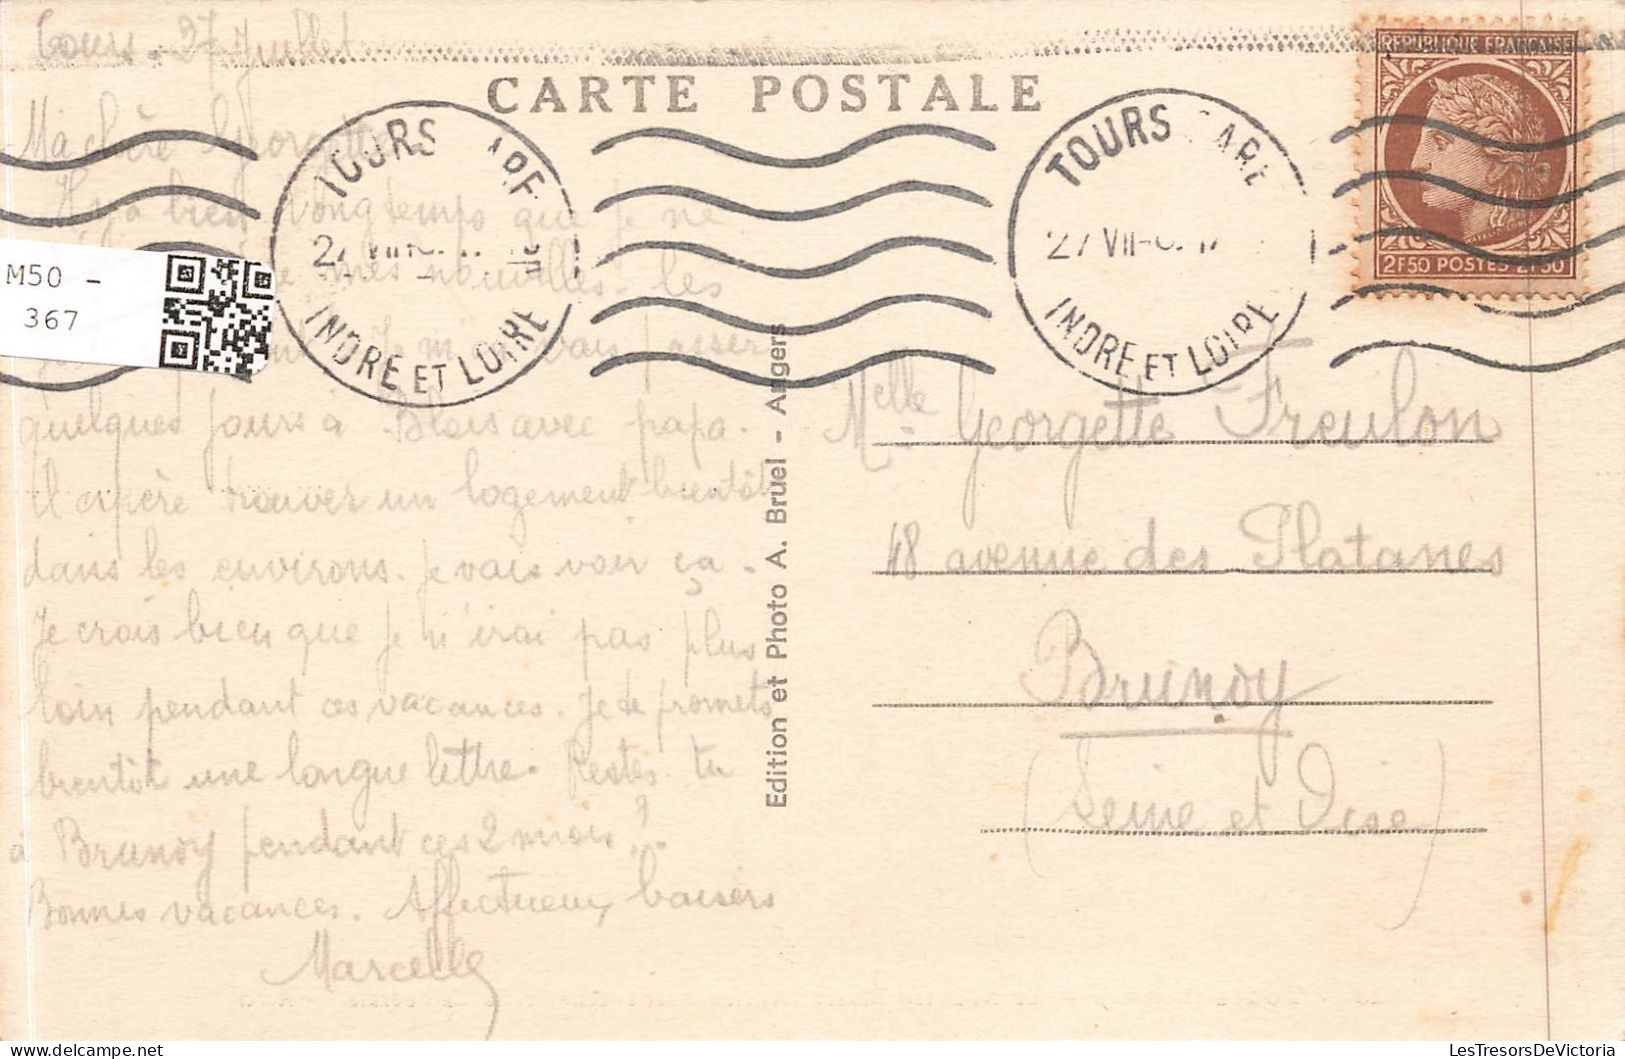 Tours - 27 Juillet
CARTE POSTALE
Ma chère Georgette
Il y a bien longtemps que je ne
mes nouvelles. les
Je m'en vais passer
quelques jours à Blois avec papa.
Il espère trouver un logement bientôt
dans les environs. Je vais voir ça.
Je crois bien que je n'irai pas plus
loin pendant ces vacances. Je te promets
bientôt une longue lettre. Restes-tu
à Brunoy pendant ces 2 mois ?
Bonnes vacances. Affectueux baisers
Marcelle
M50 -
367
TOURS GARE
27 VII
INDRE ET LOIRE
TOURS GARE
27 VII
INDRE ET LOIRE
REPUBLIQUE FRANCAISE
2F50 POSTES 2F50
Edition et Photo A. Bruel - Angers
Melle Georgette Freulon
48 avenue des Platanes
Brunoy
(Seine et Oise)
LesTresorsDeVictoria